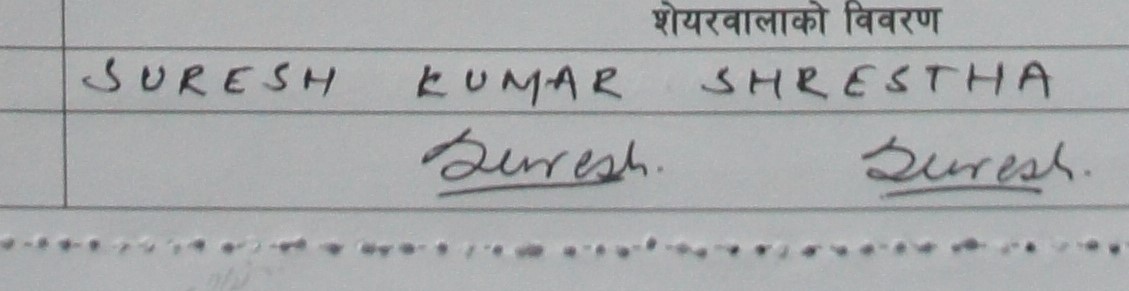 शेयरवालाको विवरण
SURESH KUMAR SHRESTHA
Suresh. Suresh.